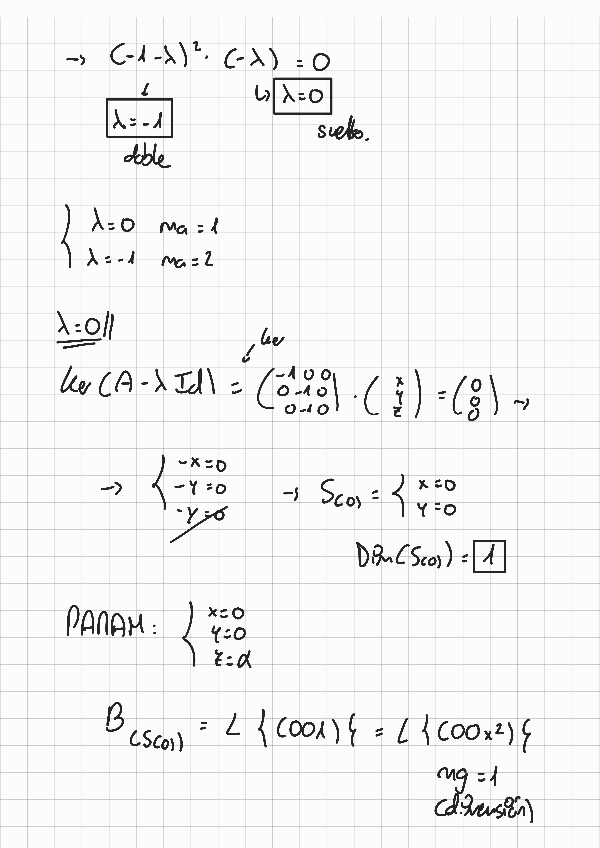 → (-1-λ)²· (-λ) = 0
↓ ↳ λ=0
λ=-1 suelto.
doble
{ λ=0 ma=1
λ=-1 ma=2
λ=0//
ker
ker (A - λ Id) = (-1 0 0
0 -1 0
0 -1 0) · (x
y
z) = (0
0
0) →
→ { -x=0
-y=0
-y=0
→ S(0) = { x=0
y=0
Dim(S(0)) = 1
PARAM: { x=0
y=0
z=α
B(S(0)) = L {(001)} = L {(00x²)}
mg = 1
(dimensión)